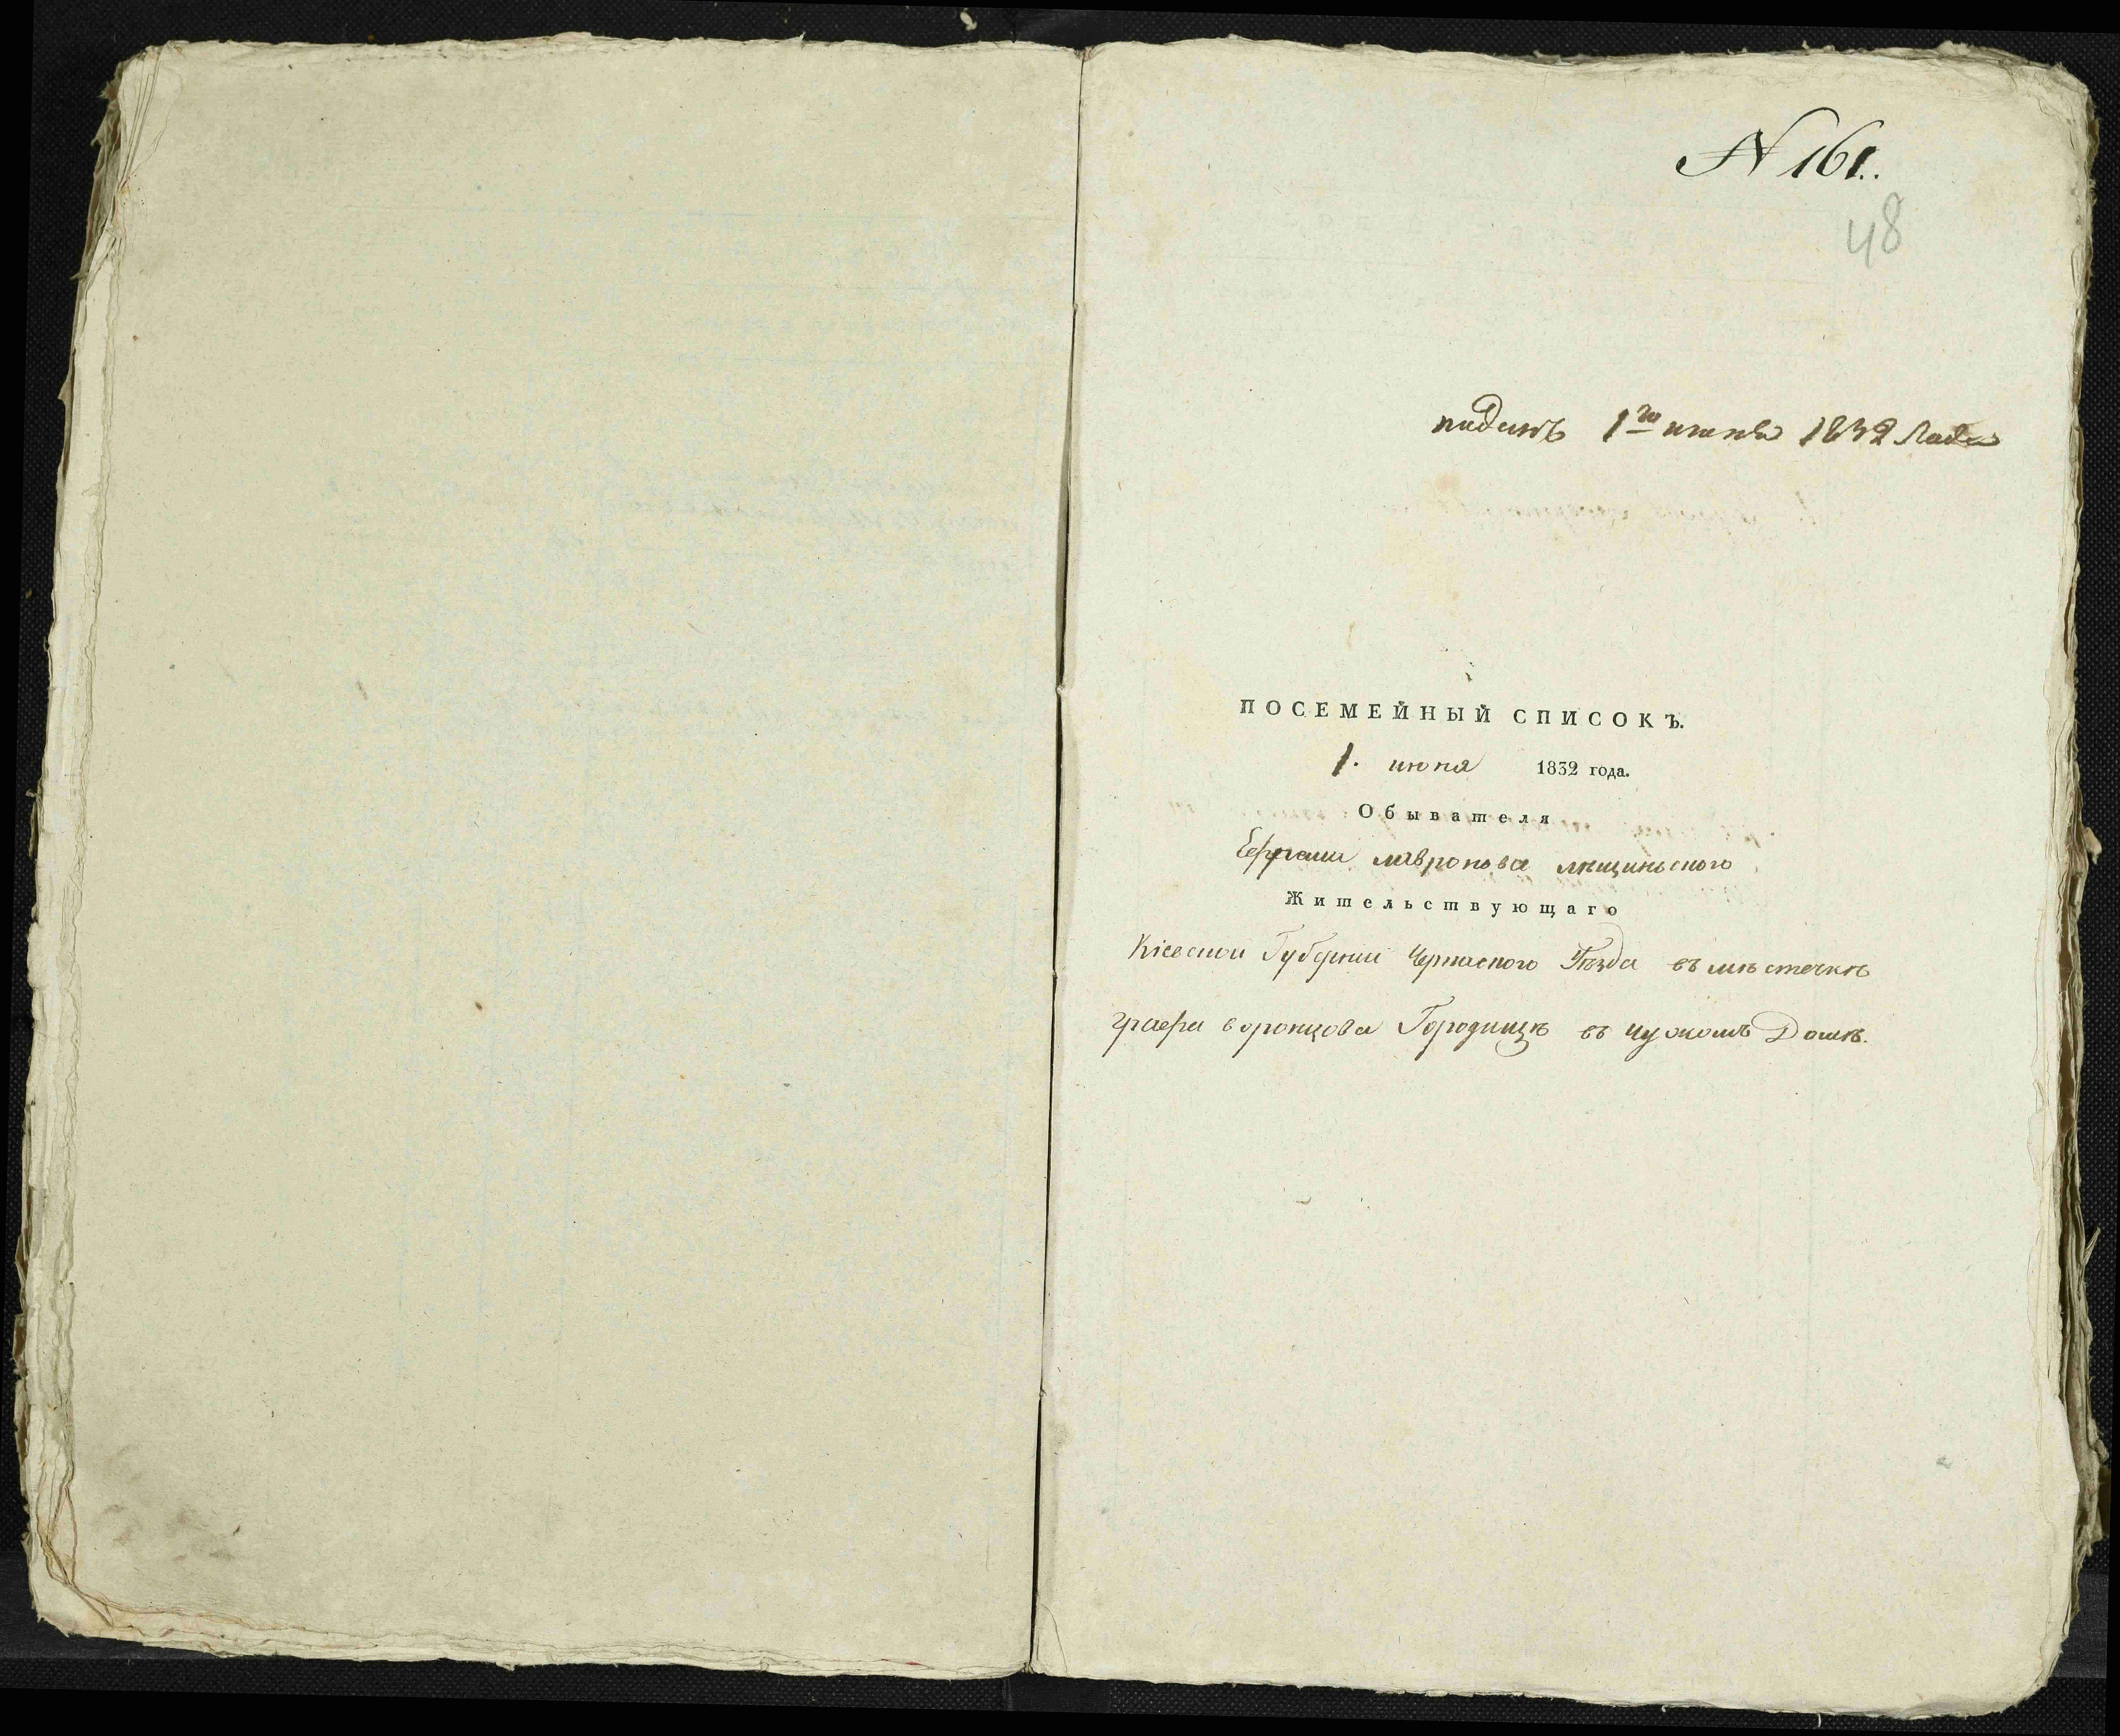 N 161.
48
поданъ 1го июня 1832 Года
ПОСЕМЕЙНЫЙ СПИСОКЪ.
1. июня 1832 года.
Обывателя
лавронова лещинского
Жительствующаго
Кіевской Губерніи Черкаского Уѣзда въ мѣстечкѣ
графа воронцова Городищѣ въ чужомъ Домѣ.